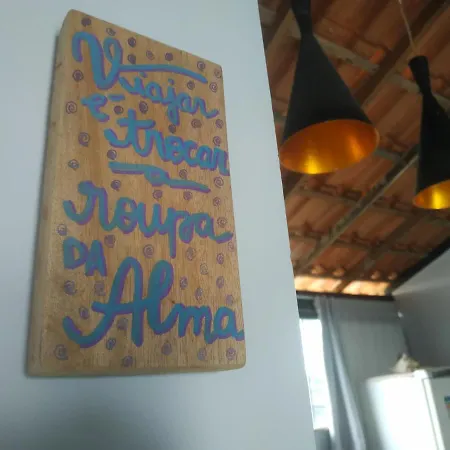 Viajar
é
trocar
a
roupa
DA
Alma